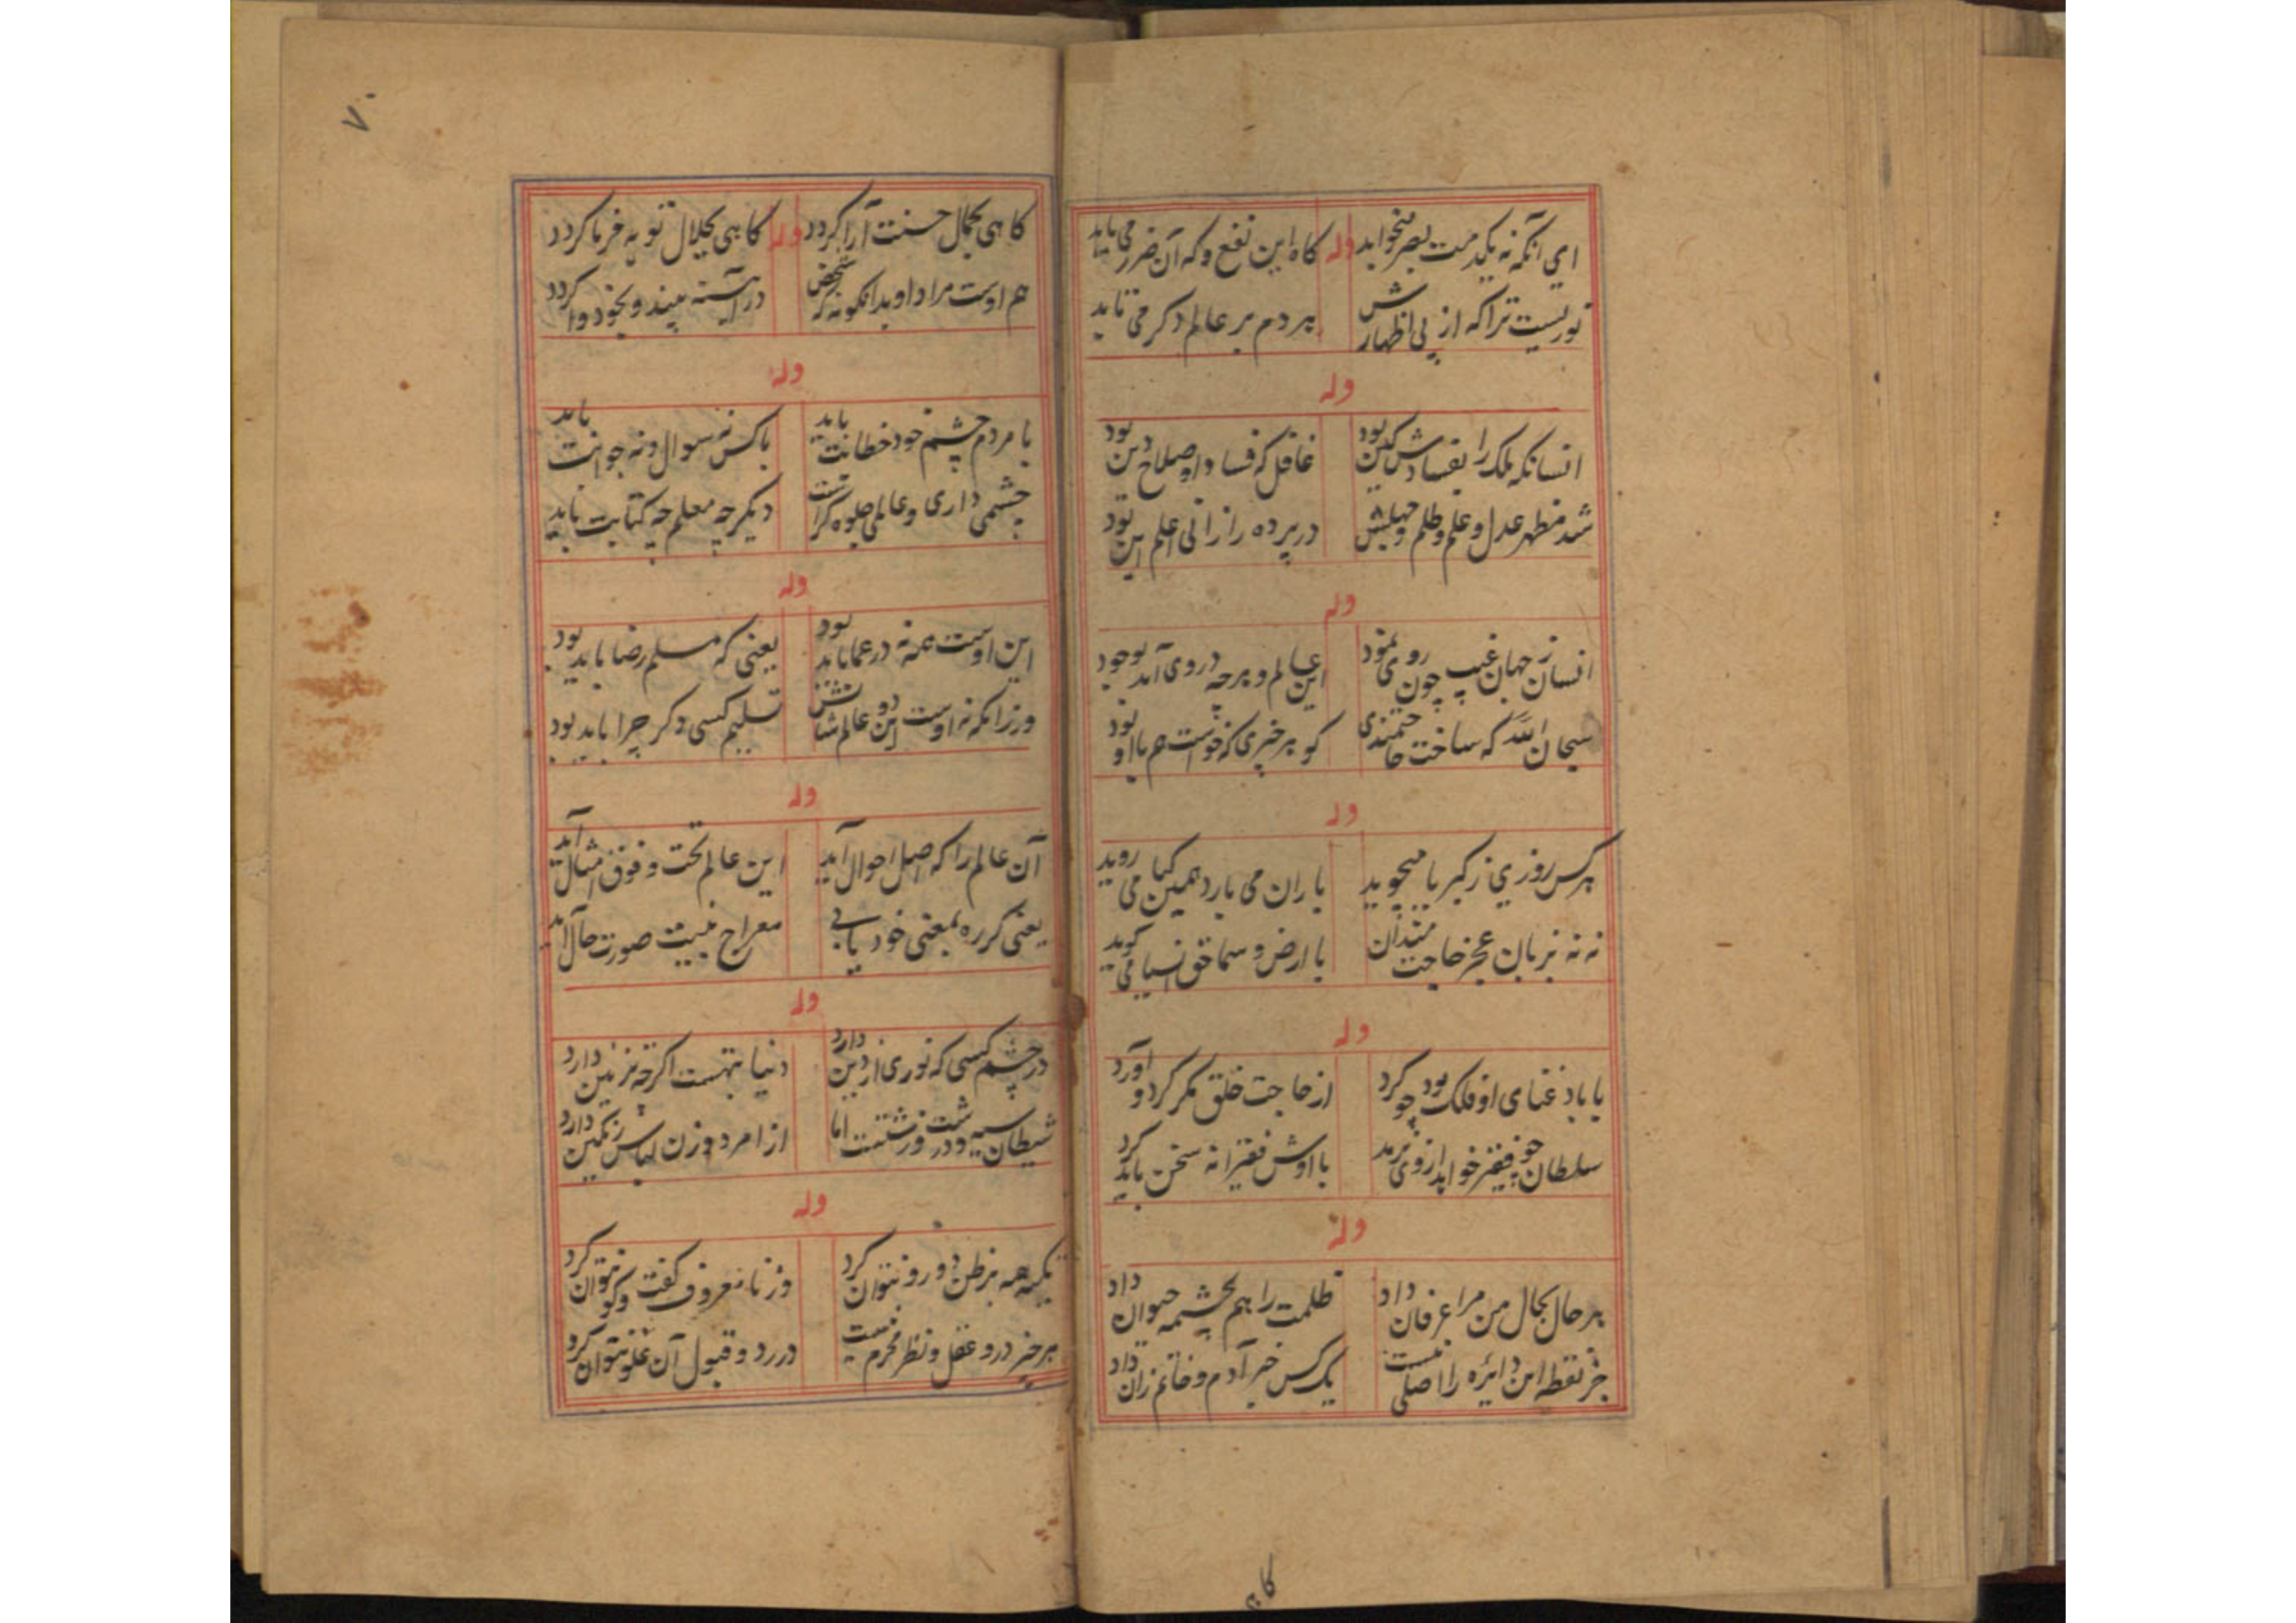 ای آنکه نه یکدمت بصر میخواید وله کاه این نفع و که آن ضرر می یابد
نوریست ترا که از پی اظهارش هر دم بر عالم دکر می تابد
وله
انسانکه ملک را بفسادش کین بود غافل که فساد او صلاح دین بود
شد مظهر عدل و علم و ظلم و جهلش در پرده راز انی اعلم این بود
وله
انسان ز جهان غیب چون روی نمود این عالم و هرچه در وی آمد بوجود
سبحان الله که ساخت حاجتمندی کو هر خبری که خواست هم با او بود
وله
هر کس روزی ز کبریا میجوید باران می بارد همین کیا می روید
نه نه بزبان عجز حاجت مندان با ارض و سما حق اسیا می کوید
وله
یا باد غنای او فلک بود چو کرد از حاجت خلق مکر کرد و آورد
سلطان چو فقیر خواهد از وی نرمد با اوش فقیرانه سخن باید کرد
وله
هر حال بحال من مرا عرفان داد ظلمت را هم بچشمه حیوان داد
جز نقطه این دایره را اصلی نیست یک کس خبر آدم و خاتم زان داد
کاهی
۷۰
کاهی بجمال حسنت آرا کردد وله کاهی بجلال توبه فرما کردد
هم اوست مراد او بدانکونه که شخص در آینه بیند و بخود وا کردد
وله
با مردم چشم خود خطابت باید با کس نه سوال و نه جوابت باید
چشمی داری و عالمی جلوه کراست دیکر چه معلم چه کتابت باید
وله
این اوست همه نه در عما باید بود یعنی که مسلم رضا باید بود
ورزانکه نه اوست این دو عالم شانش تسلیم کسی دکر چرا باید بود
وله
آن عالم را که اصل احوال آید این عالم تحت و فوق امثال آید
یعنی کر ره بمعنی خود یابی معراج نبیت صورت حال آید
وله
در چشم کسی که نوری از دین دارد دنیا تبهست اکرچه تزئین دارد
شیطان سیه و درشت و زشتست اما از امرد و زن لباس رنکین دارد
وله
تکیه همه بر ظن دو رو نتوان کرد وز نامعروف کفت و کو نتوان کرد
هر خبر درو عقل و نظر محرم نیست در رد و قبول آن غلو نتوان کرد